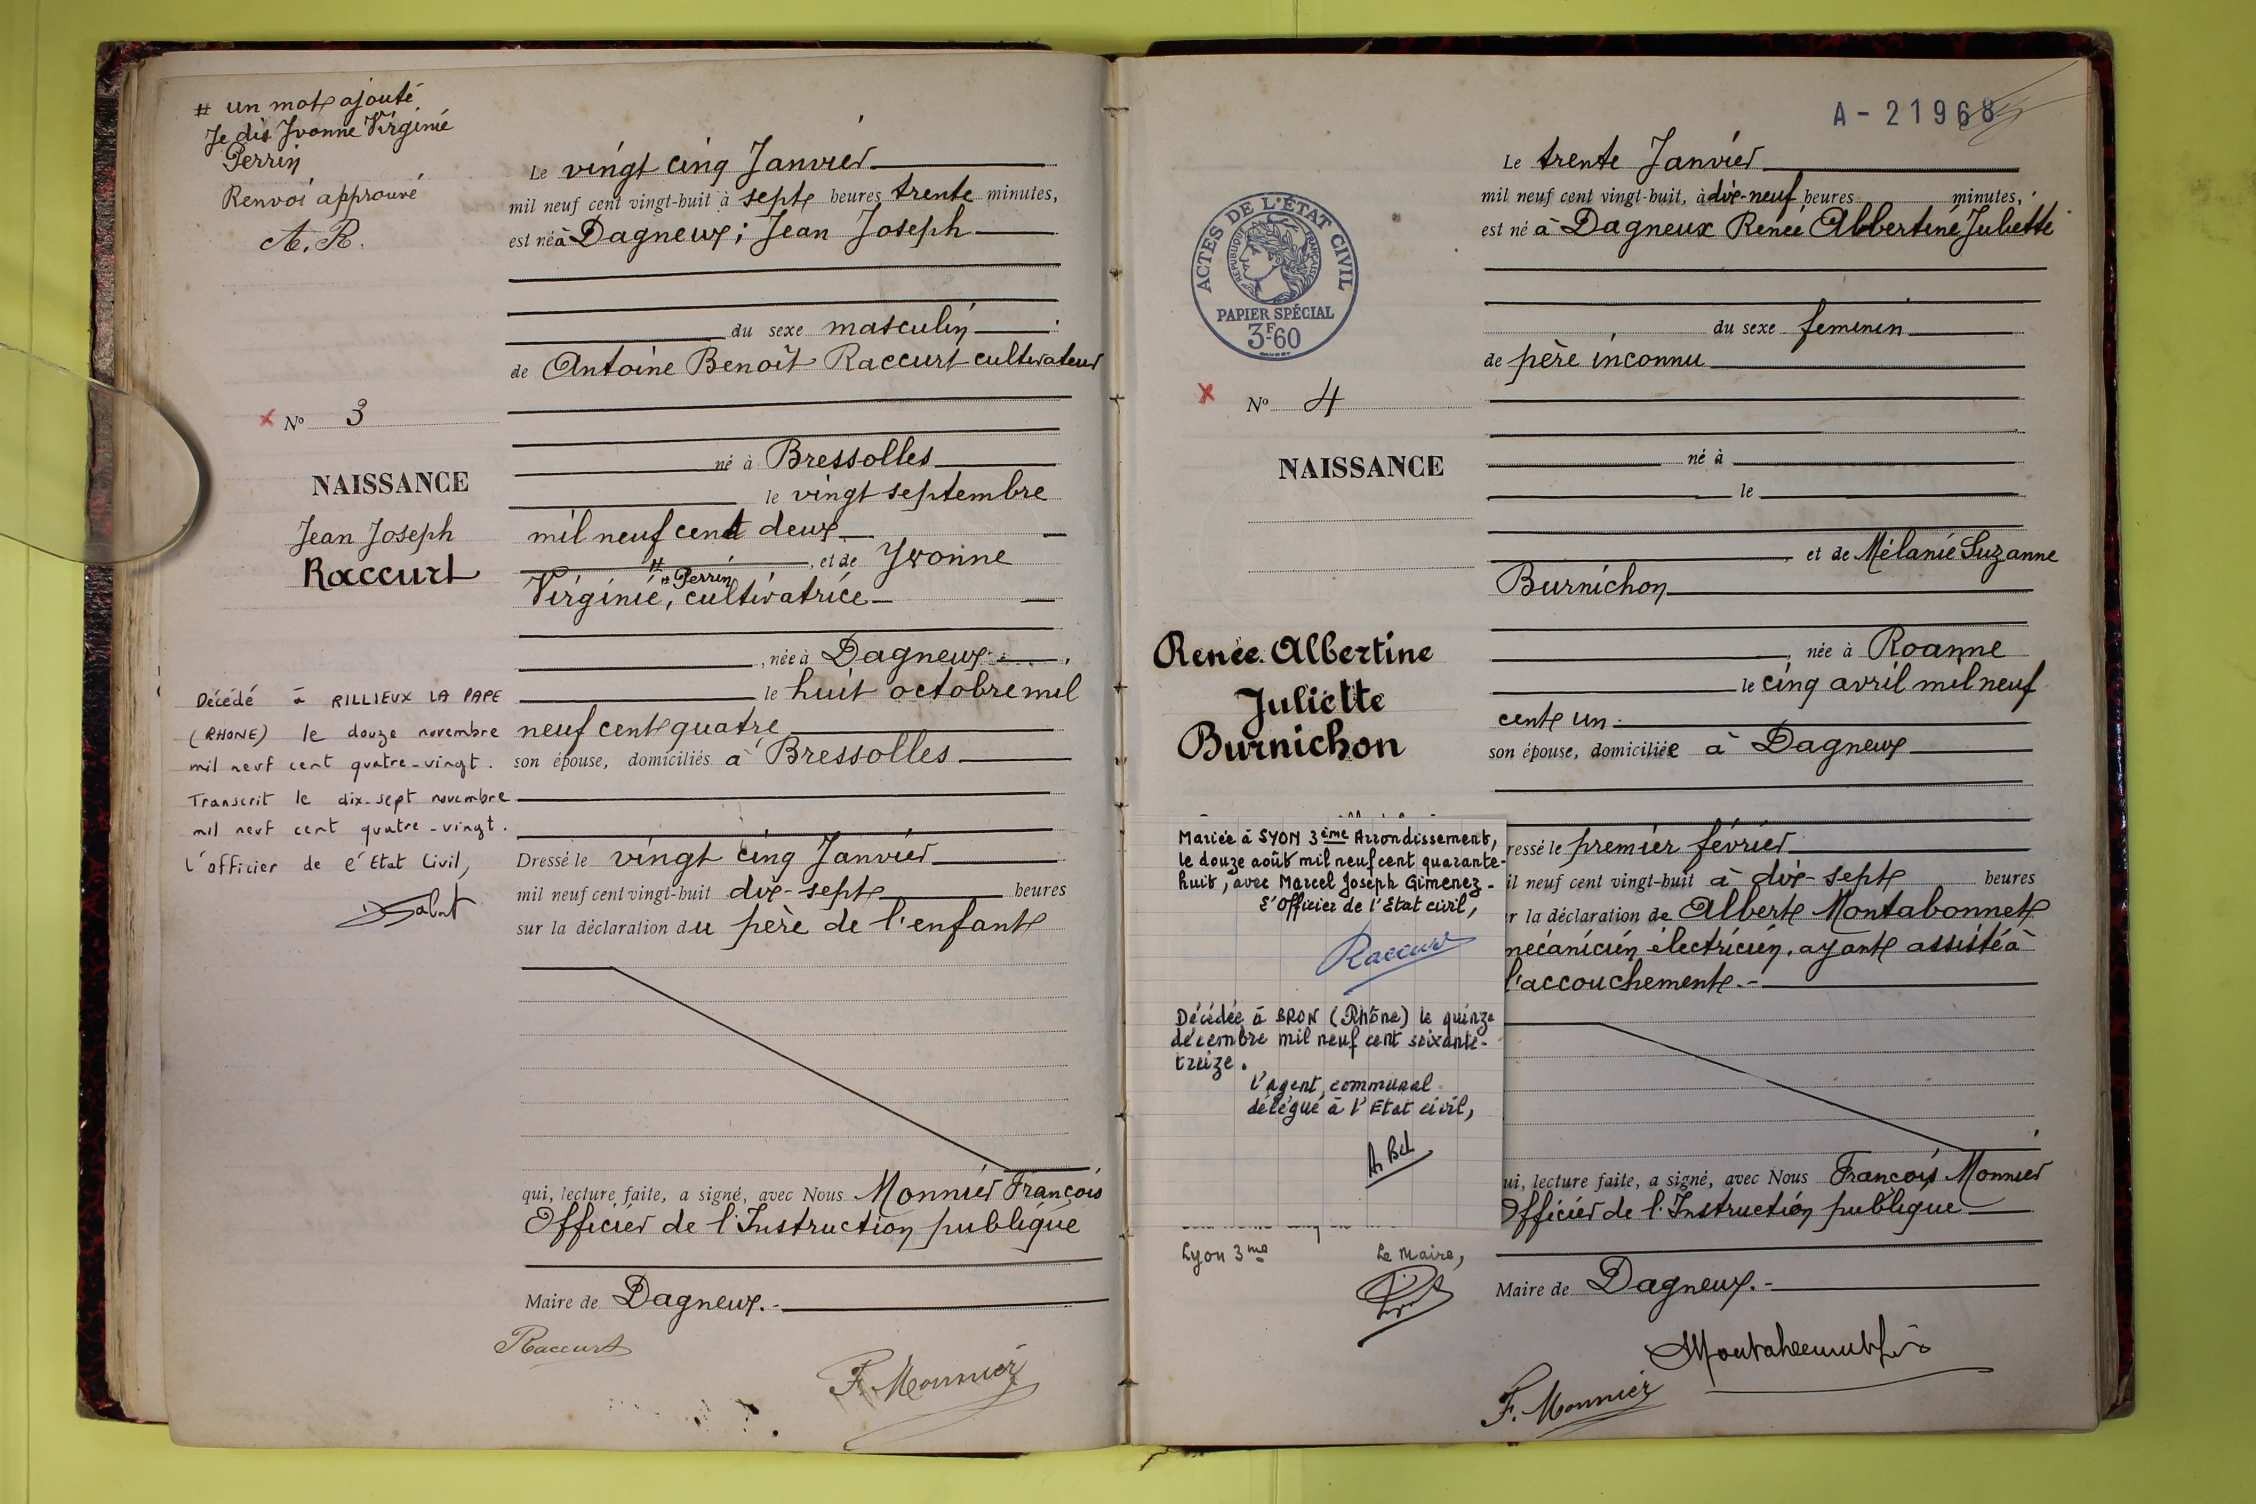 # un mot ajouté
Je dis Yvonne Virginie
Perrin
Renvoi approuvé
A. R.
N° 3
NAISSANCE
Jean Joseph
Raccurt
Décédé à RILLIEUX LA PAPE
(RHONE) le douze novembre
mil neuf cent quatre-vingt.
Transcrit le dix-sept novembre
mil neuf cent quatre-vingt.
l'officier de l'Etat Civil,
Le vingt cinq Janvier
mil neuf cent vingt-huit à sept heures trente minutes,
est né à Dagneux ; Jean Joseph
du sexe masculin
de Antoine Benoît Raccurt cultivateur
né à Bressolles
le vingt septembre
mil neuf cent deux
, et de Yvonne
# Perrin
Virginie, cultivatrice
, née à Dagneux
le huit octobre mil
neuf cent quatre
son épouse, domiciliés à Bressolles
Dressé le vingt cinq Janvier
mil neuf cent vingt-huit dix-sept heures
sur la déclaration du père de l'enfant
qui, lecture faite, a signé, avec Nous Monnier François
Officier de l'Instruction publique
Maire de Dagneux.
Raccurt
F. Monnier
A-21968
ACTES DE L'ÉTAT CIVIL
RÉPUBLIQUE FRANÇAISE
PAPIER SPÉCIAL
3F60
N° 4
NAISSANCE
Renée Albertine
Juliette
Burnichon
Mariée à LYON 3ème Arrondissement,
le douze août mil neuf cent quarante-
huit, avec Marcel Joseph Gimenez.
L'Officier de l'Etat civil,
Raccurt
Décédée à BRON (Rhône) le quinze
décembre mil neuf cent soixante-
treize.
l'agent communal
délégué à l'Etat civil,
Lyon 3me Le Maire,
Le trente Janvier
mil neuf cent vingt-huit, à dix-neuf heures minutes,
est né à Dagneux Renée Albertine Juliette
du sexe feminin
de père inconnu
né à
le
et de Mélanie Suzanne
Burnichon
, née à Roanne
le cinq avril mil neuf
cent un
son épouse, domiciliée à Dagneux
ressé le premier février
il neuf cent vingt-huit à dix-sept heures
r la déclaration de Albert Montabonnet
mécanicien électricien, ayant assisté à
l'accouchement.
ui, lecture faite, a signé, avec Nous François Monnier
Officier de l'Instruction publique
Maire de Dagneux.
F. Monnier